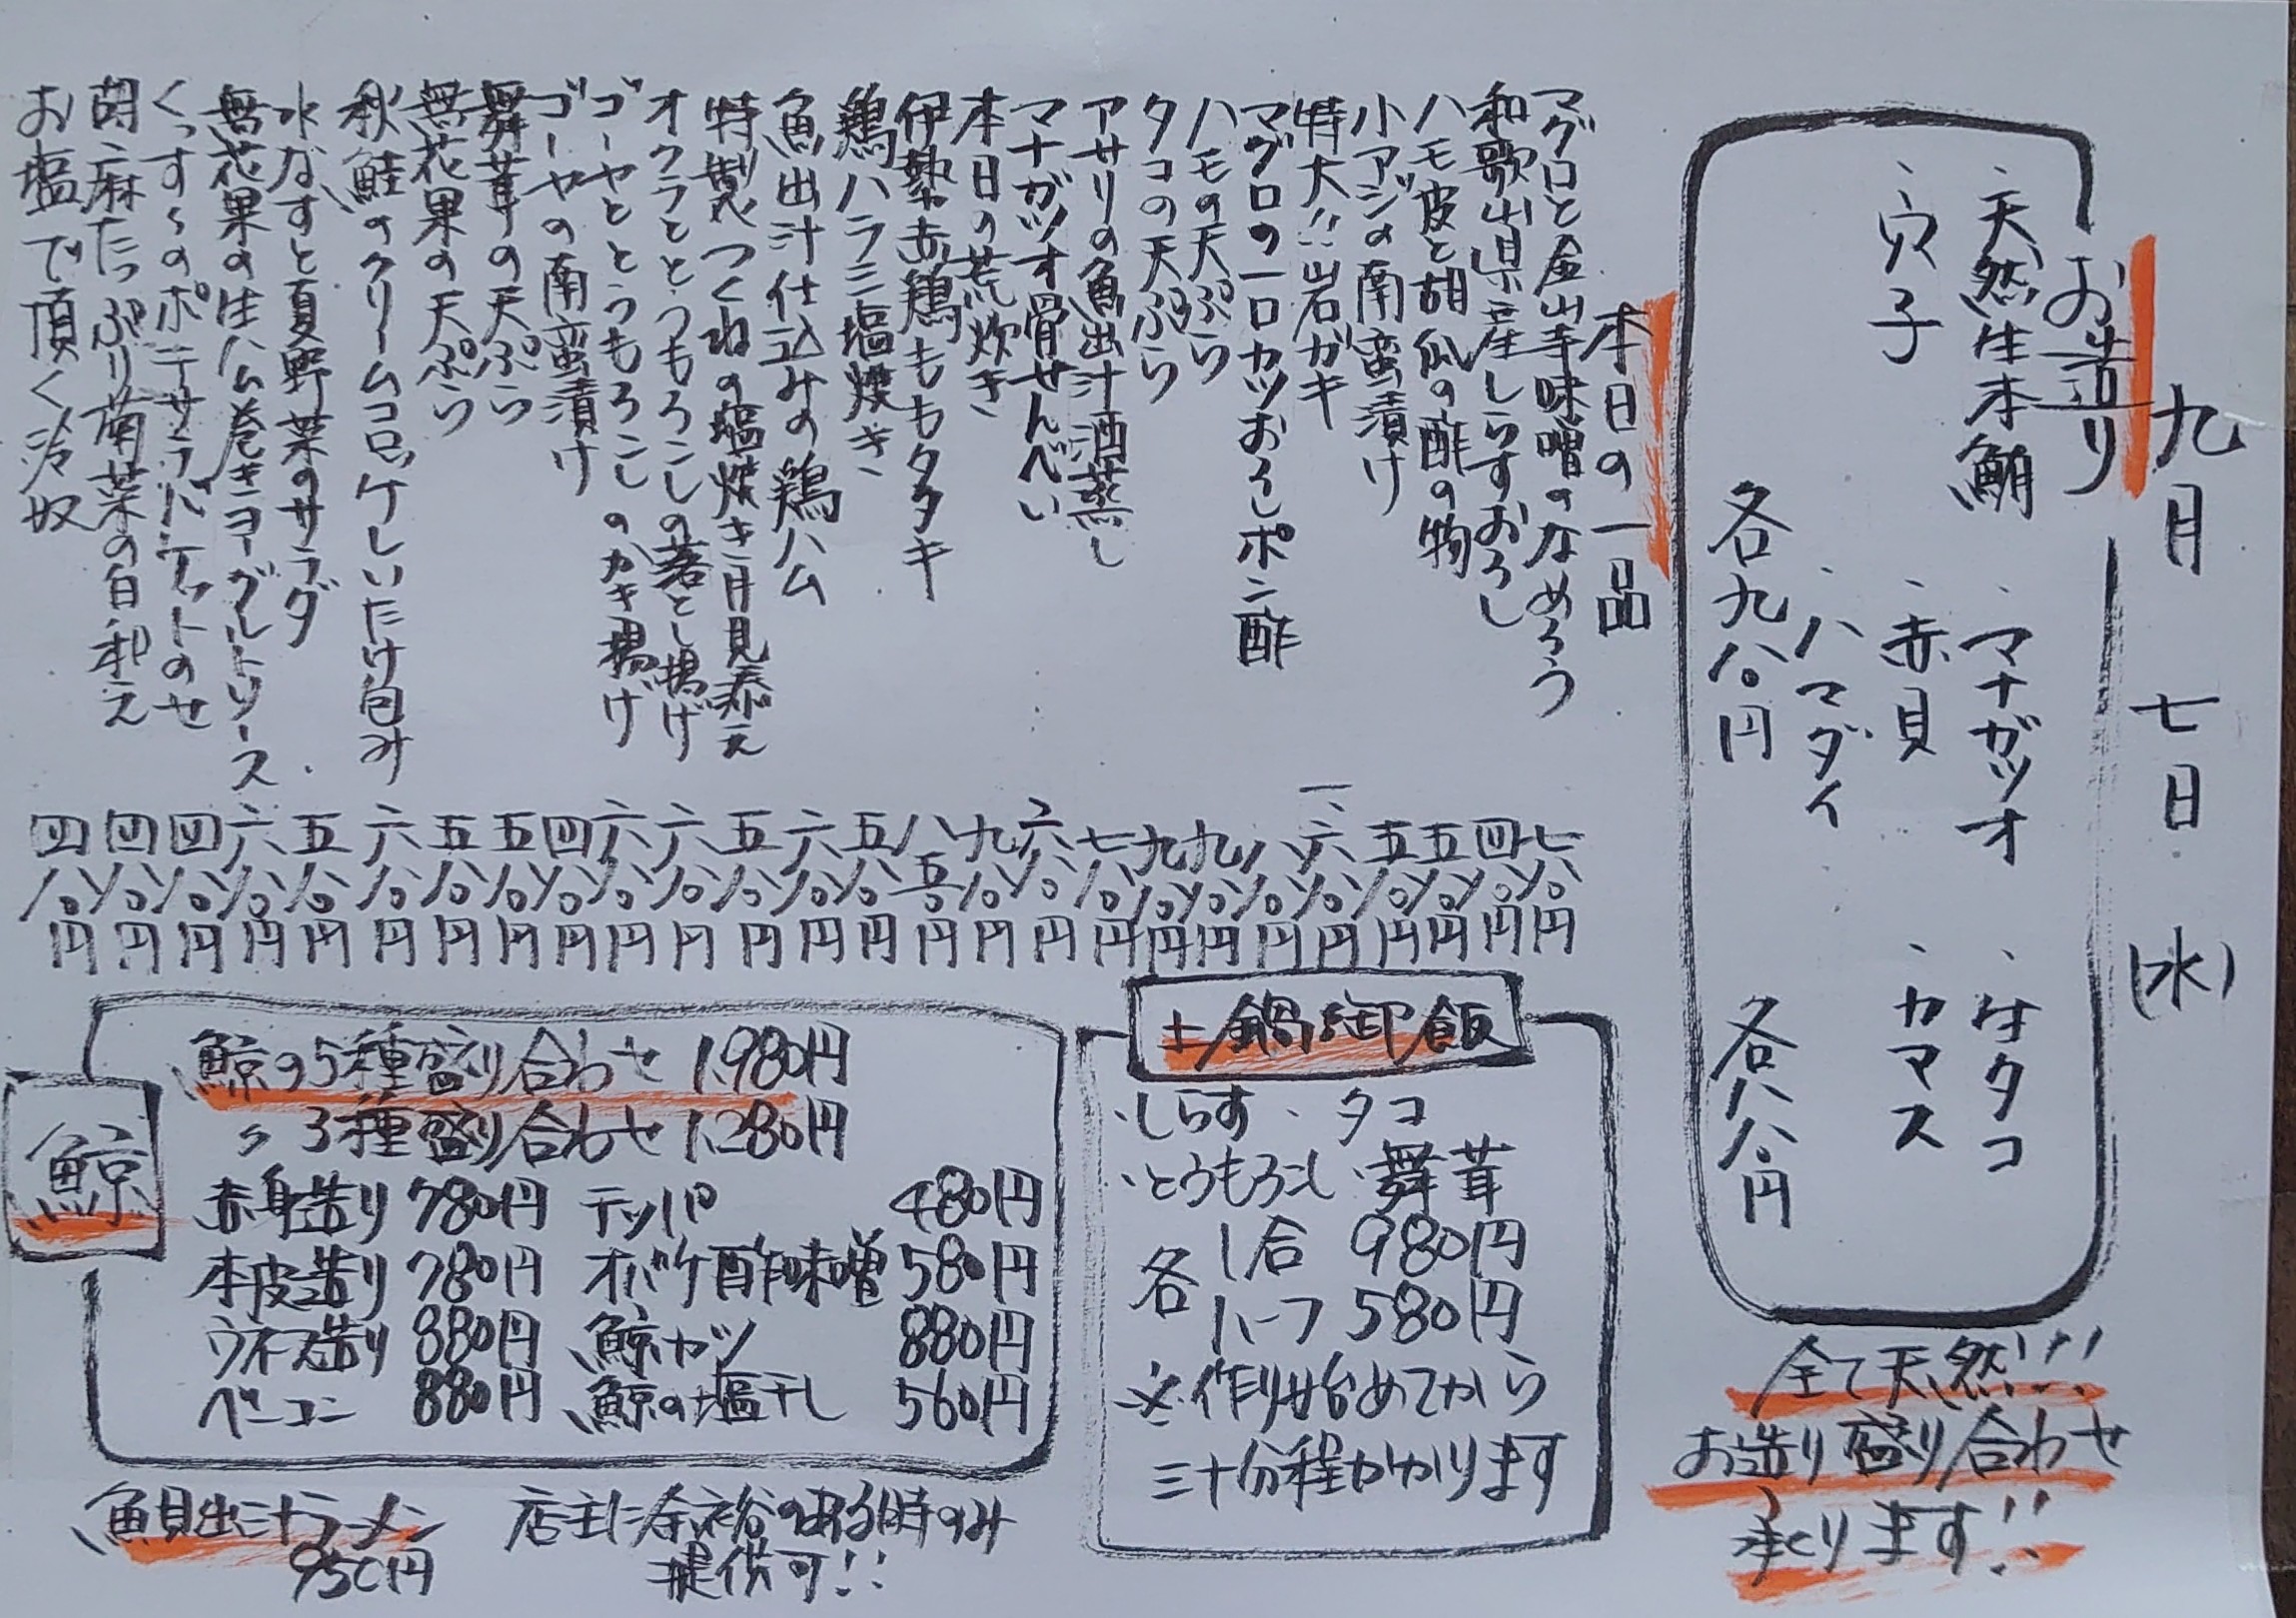 九月七日(水)
お造り
・天然生本鮪 ・マナガツオ ・生タコ
・穴子 ・赤貝 ・カマス
・ハマダイ
各九八〇円 各八八〇円
全て天然!!!
お造り盛り合わせ
承ります!!
本日の一品
マグロと金山寺味噌のなめろう 七八〇円
和歌山県産しらすおろし 四八〇円
ハモ皮と胡瓜の酢の物 五八〇円
小アジの南蛮漬け 五八〇円
特大!!岩ガキ 一、六八〇円
マグロの一口カツおろしポン酢 八八〇円
ハモの天ぷら 九八〇円
タコの天ぷら 九八〇円
アサリの魚出汁酒蒸し 七八〇円
マナガツオ骨せんべい 六八〇円
本日の荒炊き 九八〇円
伊勢赤鶏ももタタキ 八五〇円
鶏ハラミ塩焼き 五八〇円
魚出汁仕込みの鶏ハム 六八〇円
特製つくねの塩焼き月見添え 五八〇円
オクラととうもろこしの落とし揚げ 六八〇円
ゴーヤととうもろこしのかき揚げ 六八〇円
ゴーヤの南蛮漬け 四八〇円
舞茸の天ぷら 五八〇円
無花果の天ぷら 五八〇円
秋鮭のクリームコロッケしいたけ包み 六八〇円
水なすと夏野菜のサラダ 五八〇円
無花果の生ハム巻きヨーグルトソース 六八〇円
くっすくのポテサラバケットのせ 四八〇円
胡麻たっぷり菊菜の白和え 四八〇円
お塩で頂く冷奴 四八〇円
土鍋御飯
・しらす ・タコ
・とうもろこし ・舞茸
各 1合 980円
ハーフ 580円
※作り始めてから
三十分程かかります
鯨
鯨の5種盛り合わせ 1,980円
〃 3種盛り合わせ 1,280円
赤身造り 780円 テッパ 480円
本皮造り 780円 オバケ酢味噌 580円
ウネス造り 880円 鯨カツ 880円
ベーコン 880円 鯨の塩干し 560円
魚貝出汁ラーメン 店主に余裕のある時のみ
950円 提供可!!